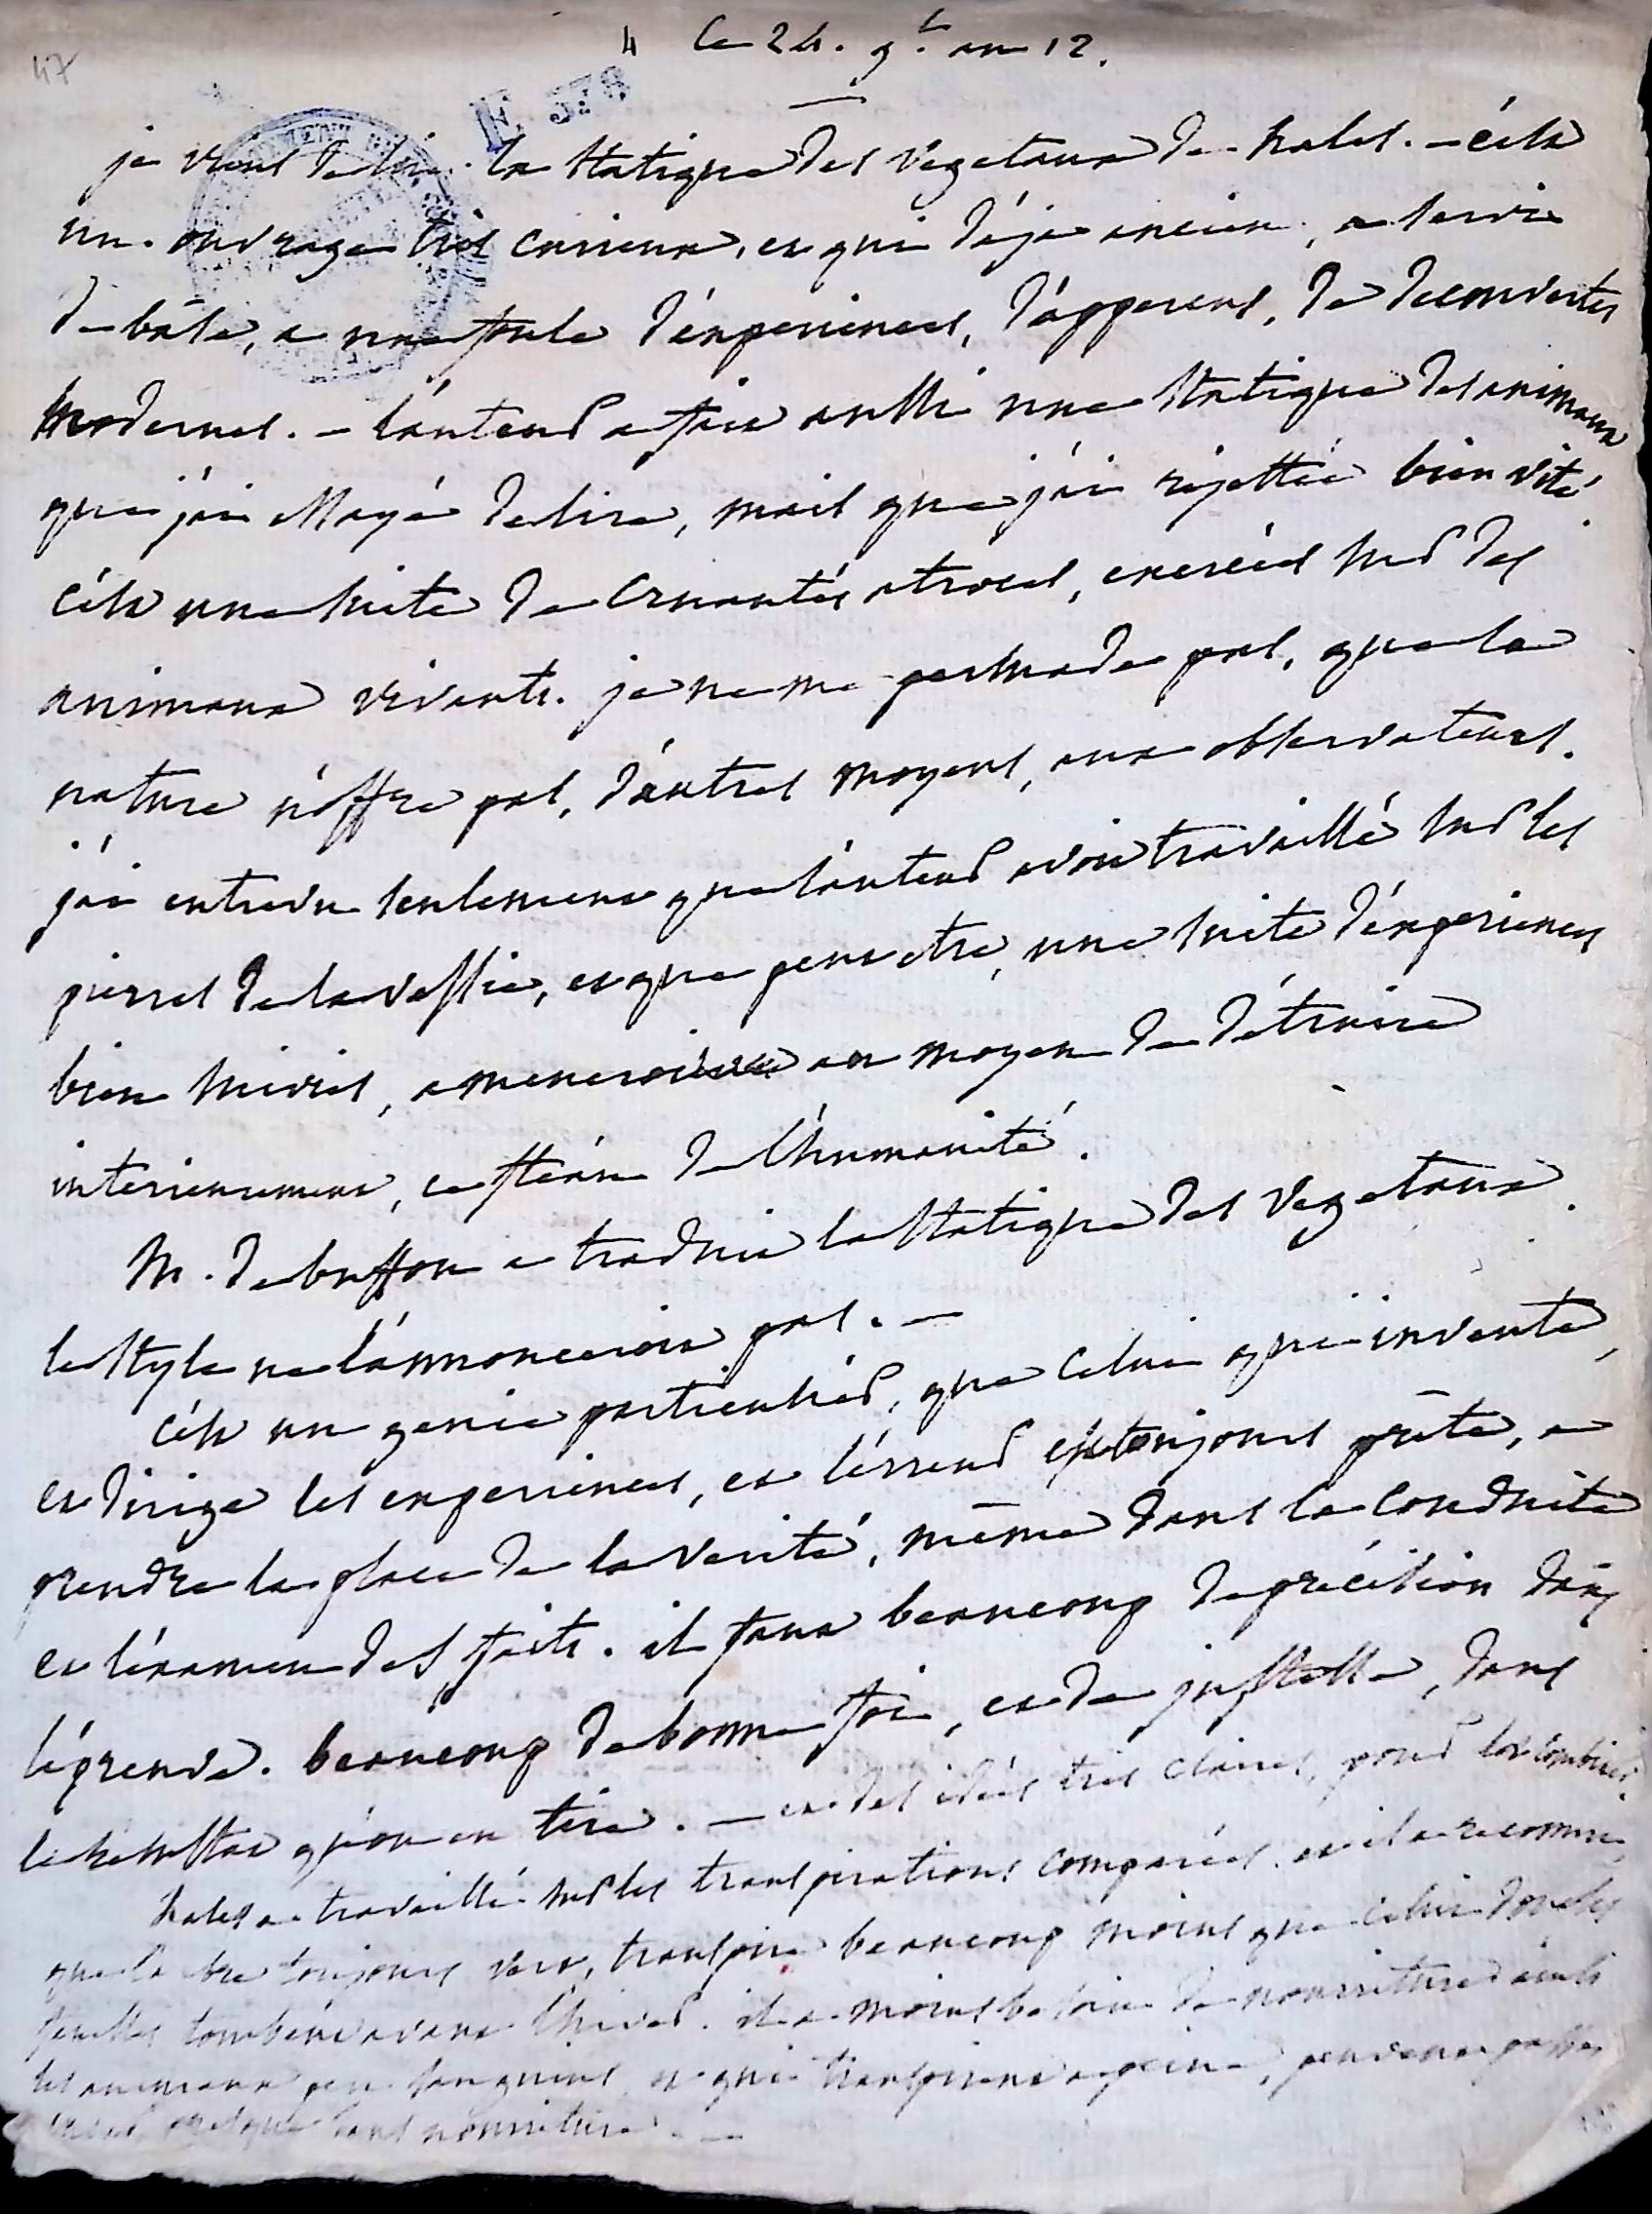 47
4 Ce 24. g.l an 12.
E 378
je viens de lire la statique des vegetaux de hales. – c'est
un ouvrage très curieux, et qui déja ancien, a servi
de bâse, a une foule d'experiences, d'apperçus, de decouvertes
modernes. – l'auteur a fait aussi une statique des animaux
que j'ai essayé de lire, mais que j'ai rejettée bien vîte.
c'est une suite de cruautés atroces, exercées sur des
animaux vivants. je ne me persuade pas, que la
nature n'offre pas, d'autres moyens, aux observateurs.
j'ai entrevu seulement que l'auteur avoit travaillé sur les
pierres de la vessie, et que peut etre, une suite d'experiences
bien suivies, ameneroit au moyen de détruire
interieurement, ce fléau de l'humanité.
M. de buffon a traduit la statique des vegetaux.
le style ne l'annonceroit pas. –
c'est un genie particulier, que celui qui invente,
et dirige les experiences, et l'erreur est toujours prête, a
prendre la place de la verité, même dans la conduite
et l'examen des faits. il faut beaucoup de précision dans
l'épreuve. beaucoup de bonne foi, et de justesse, dans
le resultat qu'on en tire. – et des idées très claires, pour les combiner.
hales a travaillé sur les transpirations comparées. et il a reconnu
que l'arbre toujours vert, transpire beaucoup moins que celui dont les
feuilles tombent avant l'hiver. il a moins besoin de nourriture ainsi
les animaux peu sanguins et qui transpirent a peine, peuvent passer
l'hiver presque sans nourriture. –